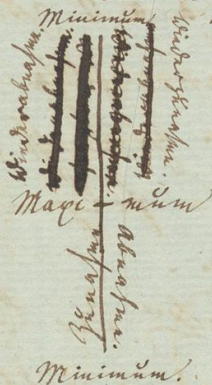 Minimum
Wiederabnahme.
Wiederzunahme.
Maxi-mum
Zunahme
Abnahme.
Minimum.